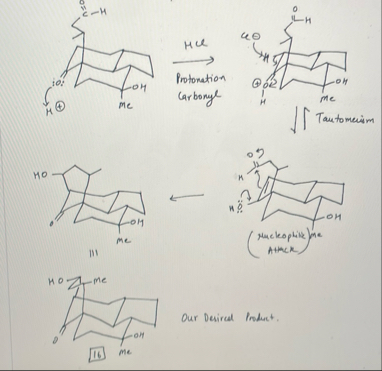 O
C-H
HCl
Protonation
Carbonyl
:O:
H ⊕
OH
Me
O
H
Cl ⊖
H
⊕ O
H
OH
Me
Tautomerism
HO
O
OH
Me
O
H
HO
OH
(Nucleophilic) Me
Attack
III
HO
Me
O
OH
Me
16
Our Desired Product.